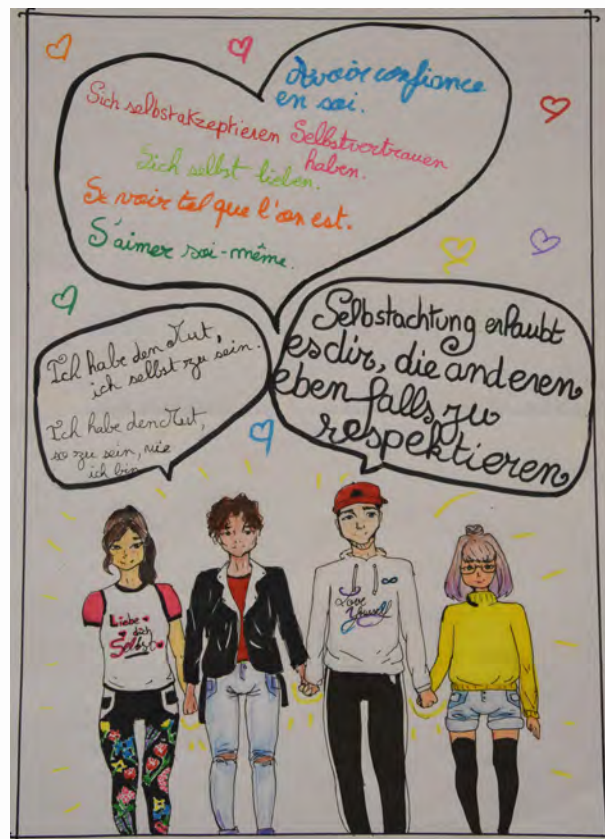 Avoir confiance
en soi.
Sich selbstakzeptieren
Selbstvertrauen
haben.
Sich selbst lieben.
Se voir tel que l'on est.
S'aimer soi-même.
Ich habe den Mut,
ich selbst zu sein.
Ich habe den Mut,
so zu sein, wie
ich bin
Selbstachtung erlaubt
es dir, die anderen
ebenfalls zu
respektieren
Liebe
dich
Selbst
Love
Yourself